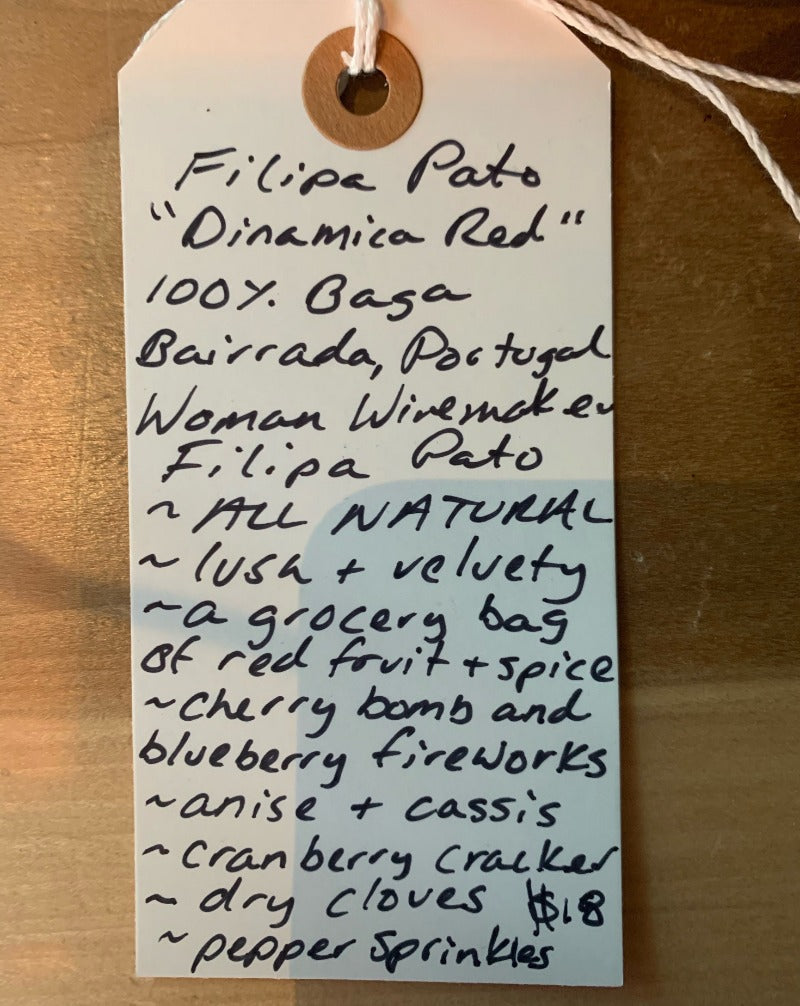 Filipa Pato
"Dinamica Red"
100% Baga
Bairrada, Portugal
Woman Winemaker
Filipa Pato
~ ALL NATURAL
~ lush + velvety
~ a grocery bag
of red fruit + spice
~ cherry bomb and
blueberry fireworks
~ anise + cassis
~ cranberry cracker
~ dry cloves $18
~ pepper sprinkles